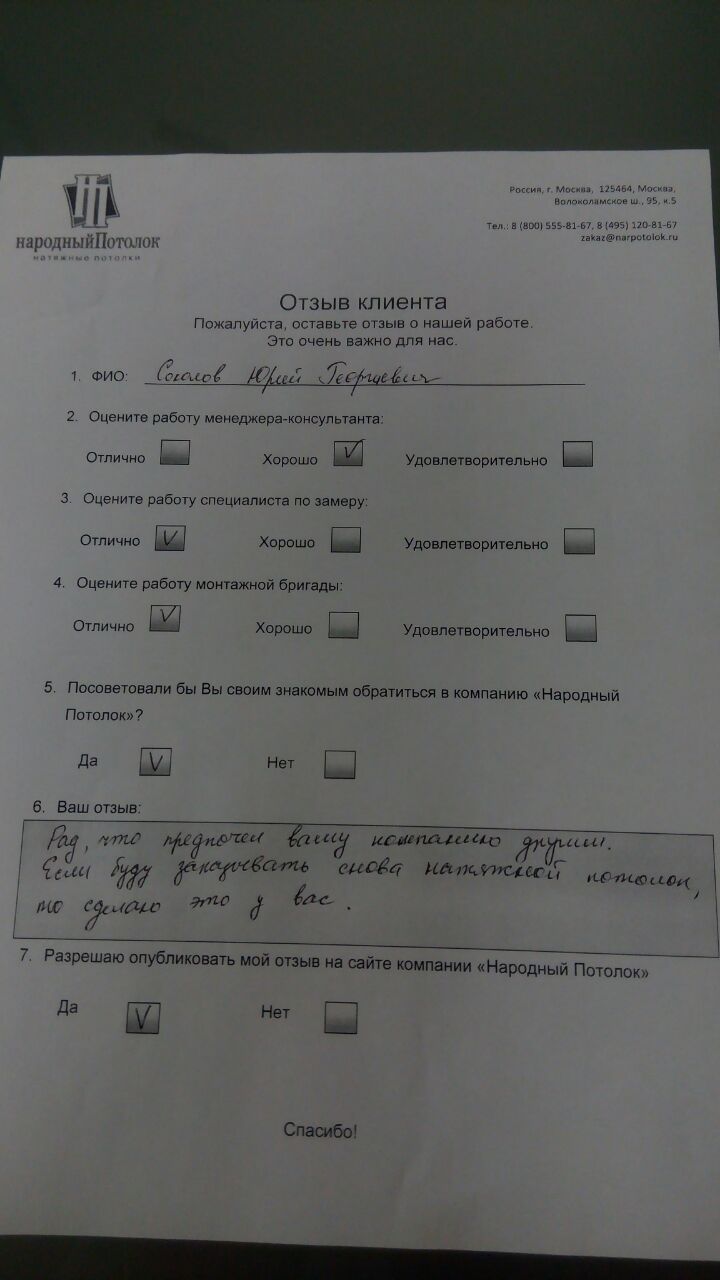 НП
народныйПотолок
натяжные потолки
Россия, г. Москва, 125464, Москва,
Волоколамское ш., 95, к.5
Тел.: 8 (800) 555-81-67, 8 (495) 120-81-67
zakaz@narpotolok.ru
Отзыв клиента
Пожалуйста, оставьте отзыв о нашей работе.
Это очень важно для нас.
1. ФИО: Соколов Юрий Георгиевич
2. Оцените работу менеджера-консультанта:
Отлично Хорошо V Удовлетворительно
3. Оцените работу специалиста по замеру:
Отлично V Хорошо Удовлетворительно
4. Оцените работу монтажной бригады:
Отлично V Хорошо Удовлетворительно
5. Посоветовали бы Вы своим знакомым обратиться в компанию «Народный
Потолок»?
Да V Нет
6. Ваш отзыв:
Рад, что предпочел вашу компанию другим.
Если буду заказывать снова натяжной потолок,
то сделаю это у вас.
7. Разрешаю опубликовать мой отзыв на сайте компании «Народный Потолок»
Да V Нет
Спасибо!